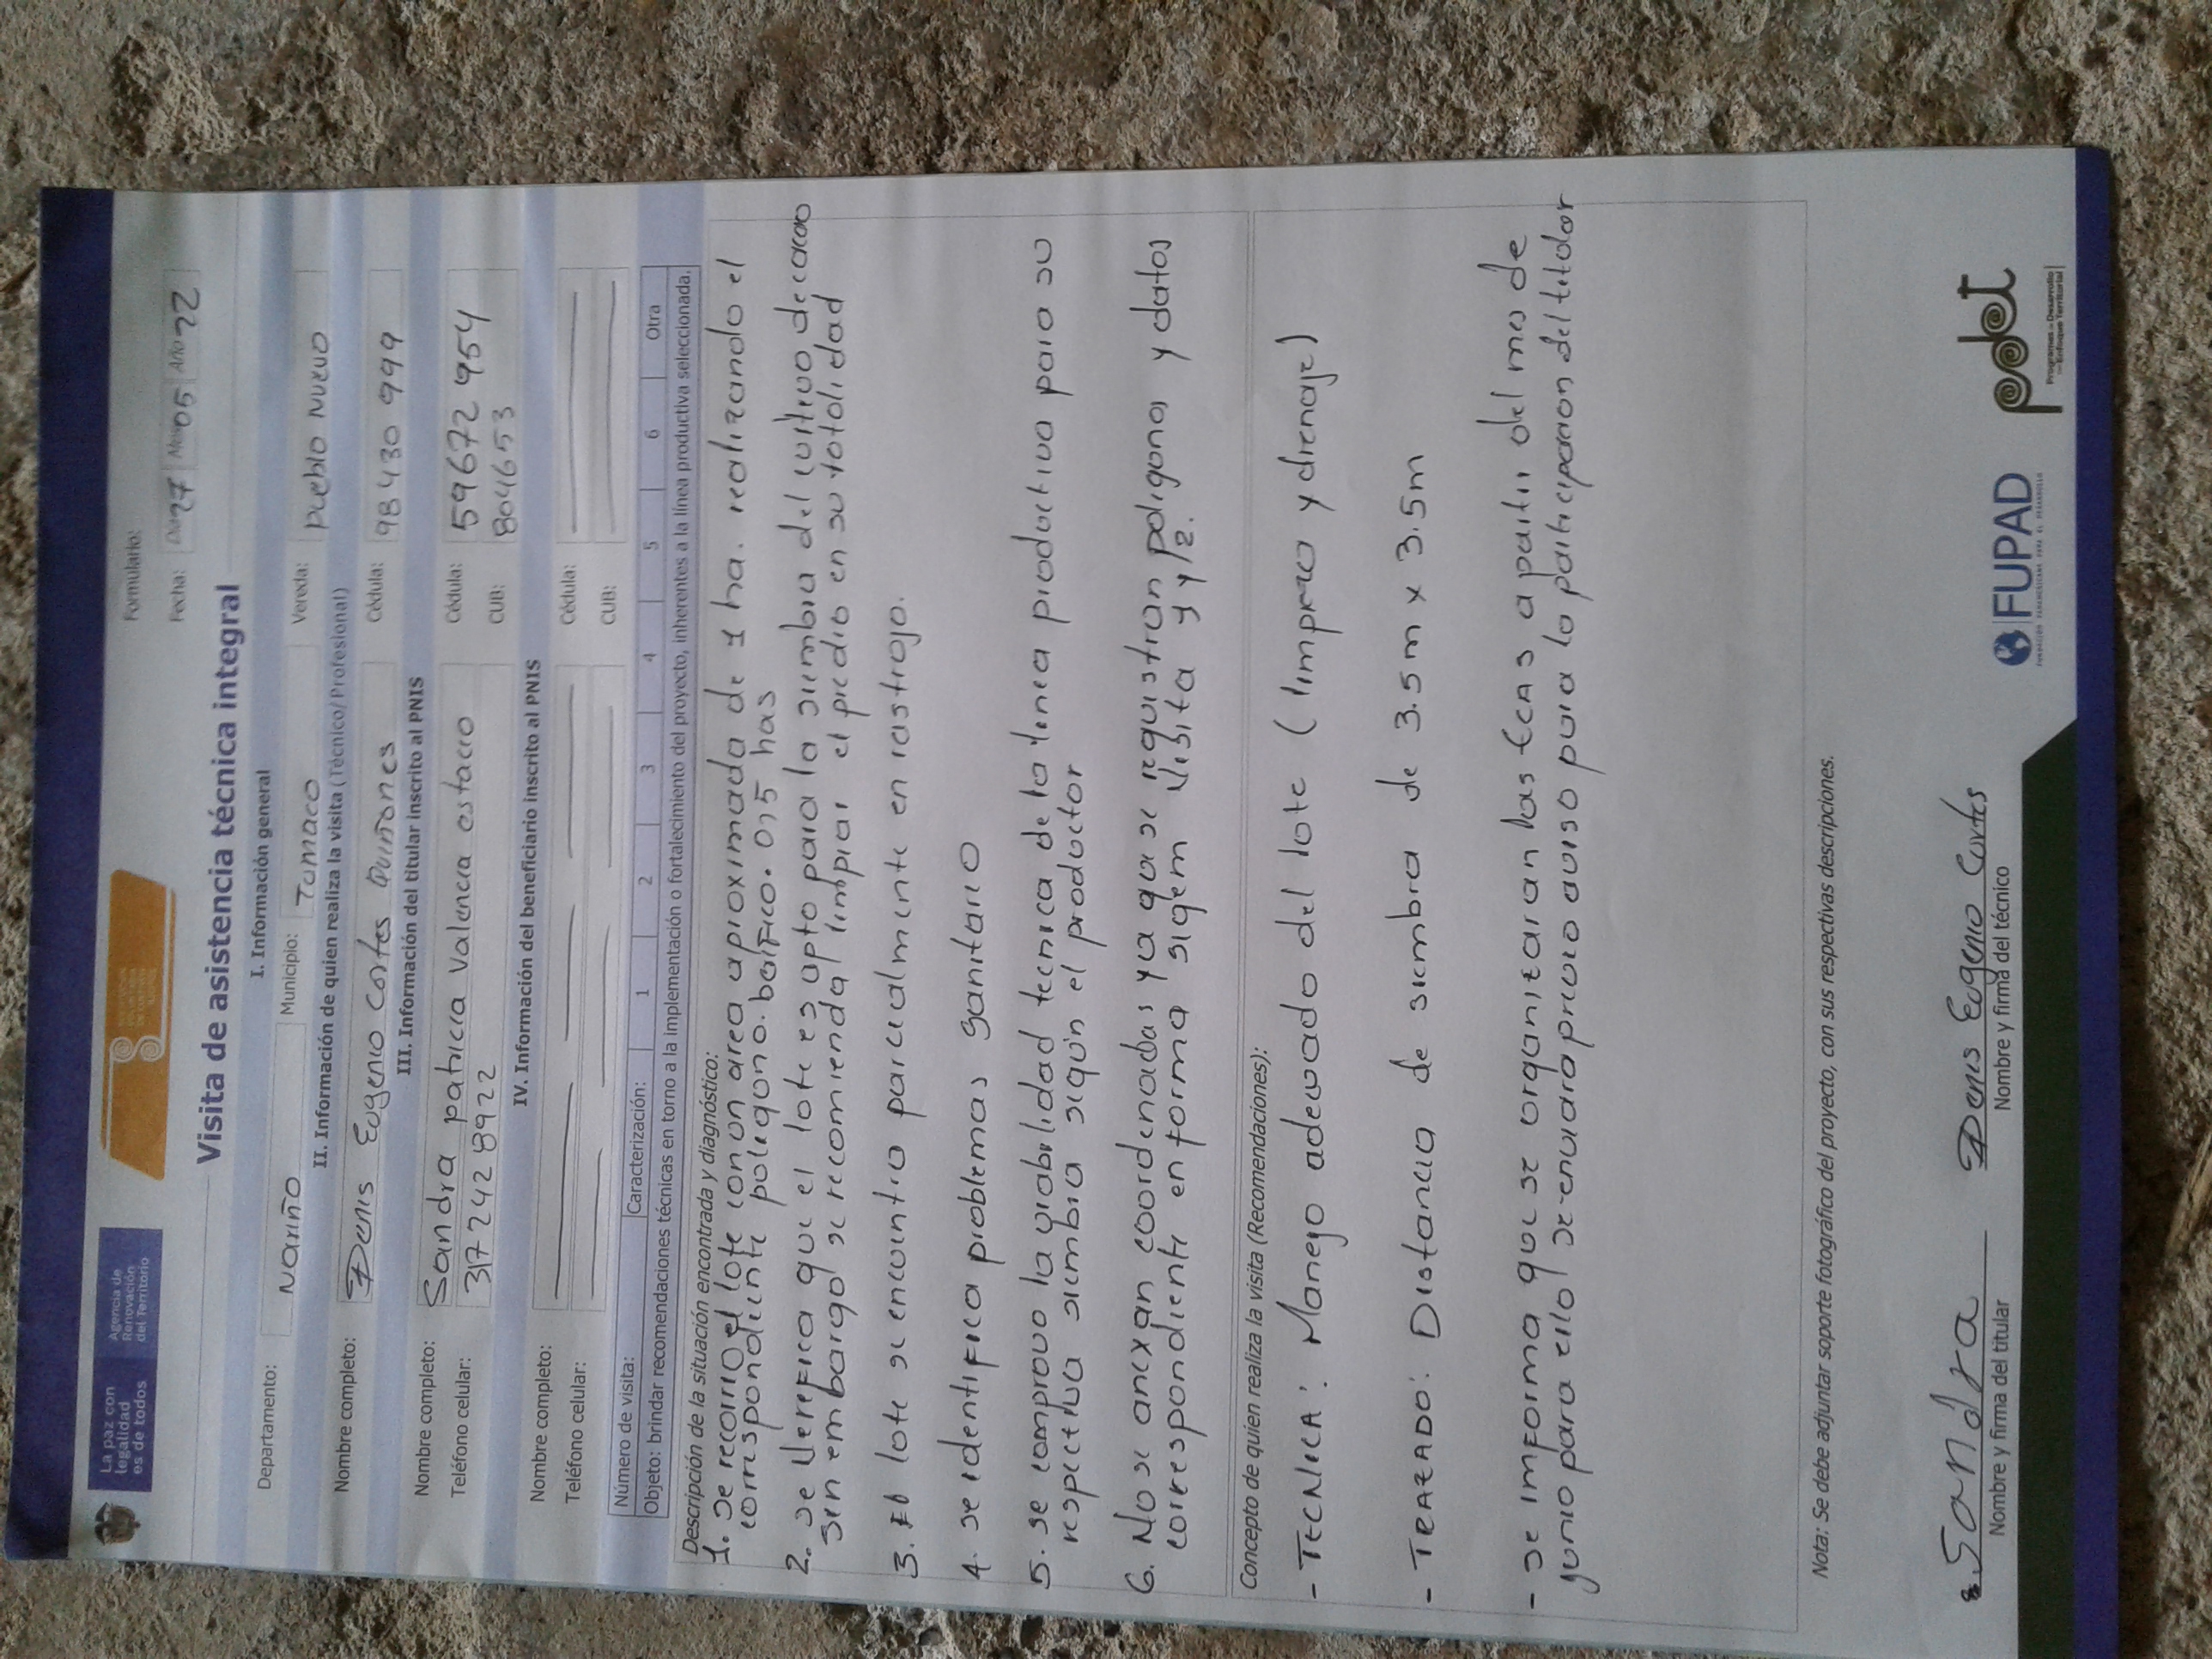 La paz con
legalidad
es de todos
Agencia de
Renovación
del Territorio
Formulario:
Fecha: Día 27 Mes 05 Año 22
Visita de asistencia técnica integral
I. Información general
Departamento: Nariño Municipio: Tumaco Vereda: pueblo nuevo
II. Información de quien realiza la visita (Técnico/Profesional)
Nombre completo: Denis Eugenio Cortes Quiñones Cédula: 98 430 999
III. Información del titular inscrito al PNIS
Nombre completo: Sandra patricia Valencia estacio Cédula: 59672 954
Teléfono celular: 317 242 8922 CUB: 804653
IV. Información del beneficiario inscrito al PNIS
Nombre completo: Cédula:
Teléfono celular: CUB:
Número de visita: Caracterización: 1 2 3 4 5 6 Otra
Objeto: brindar recomendaciones técnicas en torno a la implementación o fortalecimiento del proyecto, inherentes a la línea productiva seleccionada.
Descripción de la situación encontrada y diagnóstico:
1. se recorrio el lote con un area aproximada de 1 ha. realizando el
correspondiente poligono. 0,5 has
2. se Verefica que el lote es apto para la siembra del cultivo de cacao
sin embargo se recomienda limpiar el predio en su totalidad
3. El lote se encuentra parcialmente en rastrojo.
4. se identifica problemas sanitario
5. se comprovo la viabilidad tecnica de la linea productiva para su
respectiva siembra según el productor
6. No se anexan coordenadas ya que se registran poligonos y datos
correspondiente en forma sigem visita 1 y/2.
Concepto de quien realiza la visita (Recomendaciones):
- TECNICA: Manejo adecuado del lote (limpieza y drenaje)
- TRAZADO: Distancia de siembra de 3.5m x 3.5m
- se imforma que se organizaran las ECAS a partir del mes de
junio para ello se enviara previo aviso para la participacion del titular
Nota: Se debe adjuntar soporte fotográfico del proyecto, con sus respectivas descripciones.
Sandra
Nombre y firma del titular
Denis Eugenio Cortes
Nombre y firma del técnico
FUPAD
FUNDACIÓN PANAMERICANA PARA EL DESARROLLO
pdet
Programas de Desarrollo
con Enfoque Territorial